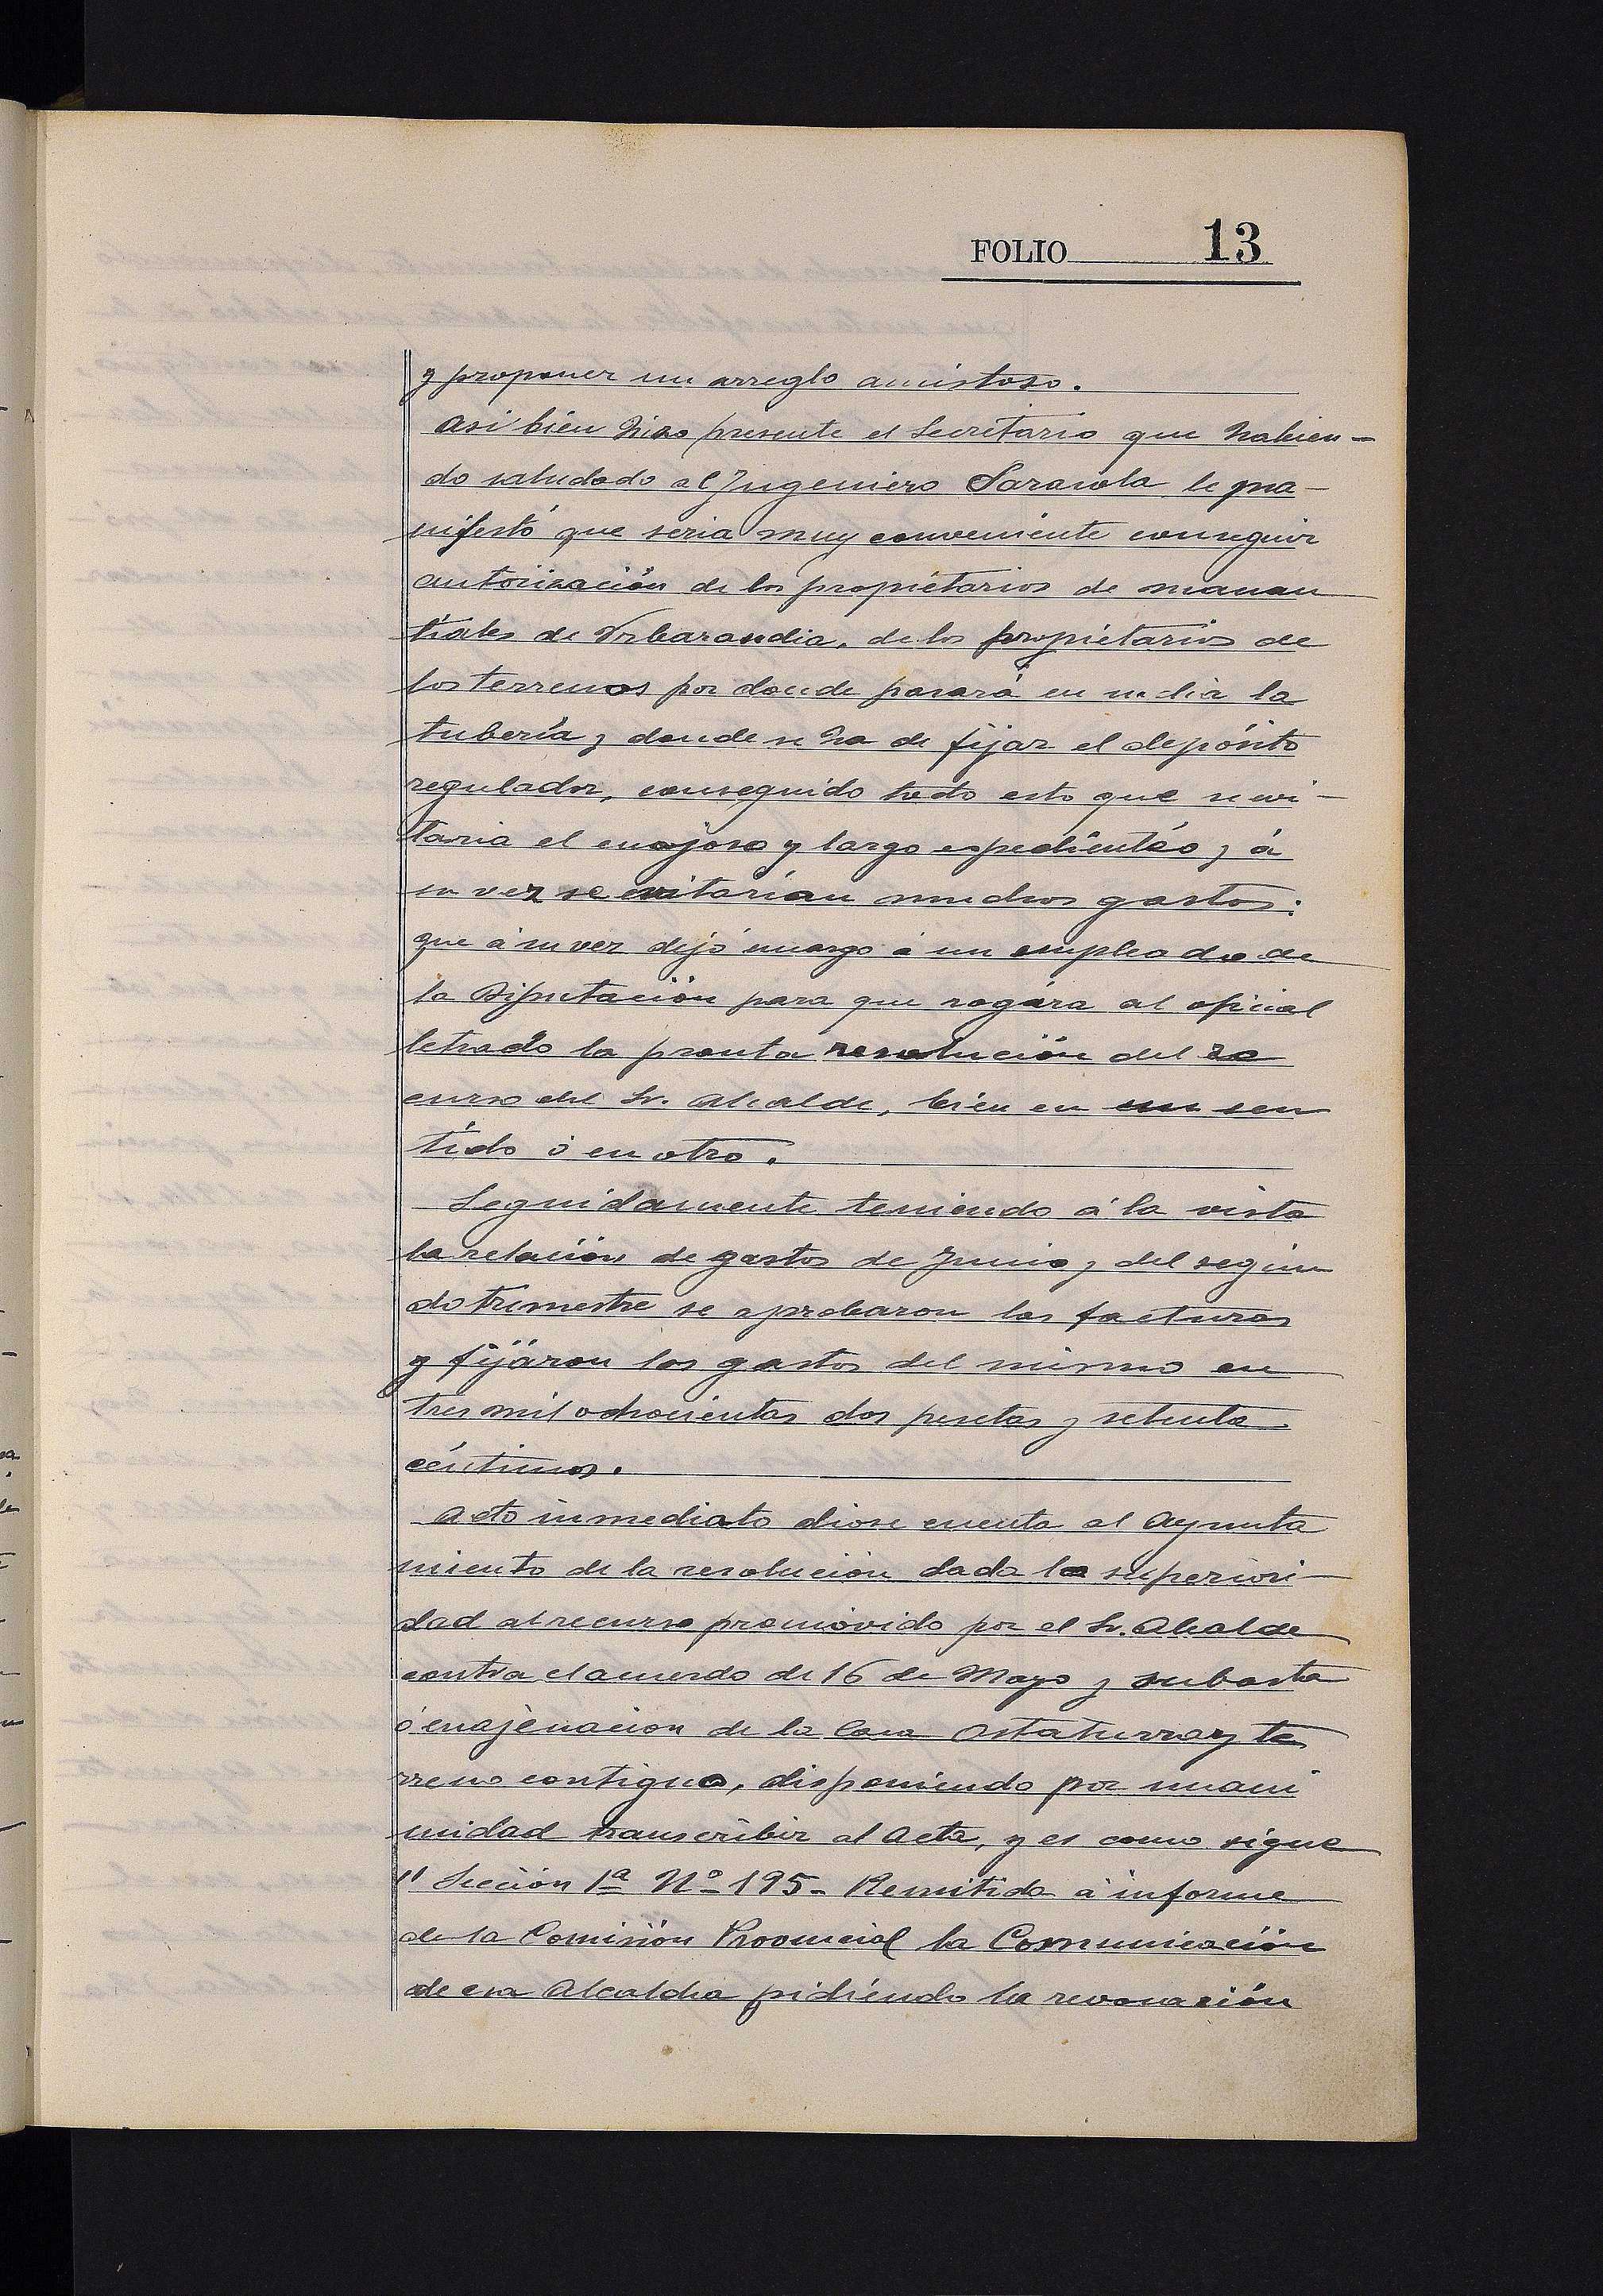 FOLIO 13
y proponer un arreglo amistoso.
Asi bién hizo presente el Secretario que habien-
do saludado al Ingeniero Sarasola le ma-
nifestó que seria muy conveniente conseguir
autorización de los propietarios de manan
tiales de Urbarandia, de los propietarios de
los terrenos por donde pasará en su dia la
tubería y donde se ha de fijar el depósito
regulador, conseguido todo esto que se evi-
taria el enojoso y largo expedienteo y á
su vez se evitarían muchos gastos:
que á su vez dejó encargo á un empleado de
la Diputación para que rogára al oficial
letrado la pronta resolución del re
curso del Sr. Alcalde, bién en un sen
tido ó en otro.
Seguidamente teniendo á la vista
la relación de gastos de Junio y del segun
do trimestre se aprobaron las facturas
y fijáron los gastos del mismo en
tres mil ochocientas dos pesetas y setenta
céntimos.
Acto inmediato diose cuenta al Ayunta
miento de la resolución dada la superiori-
dad al recurso promóvido por el Sr. Alcalde
contra el acuerdo de 16 de Mayo y subasta
ó enajenacion de la Casa Ostaturra y te
rreno contiguo, disponiendo por unani
midad transcribir al Acta, y es como sigue
"Sección 1ª Nº 195- Remitida á informe
de la Comisión Provincial la Comunicación
de esa Alcaldia pidiendo la revocación